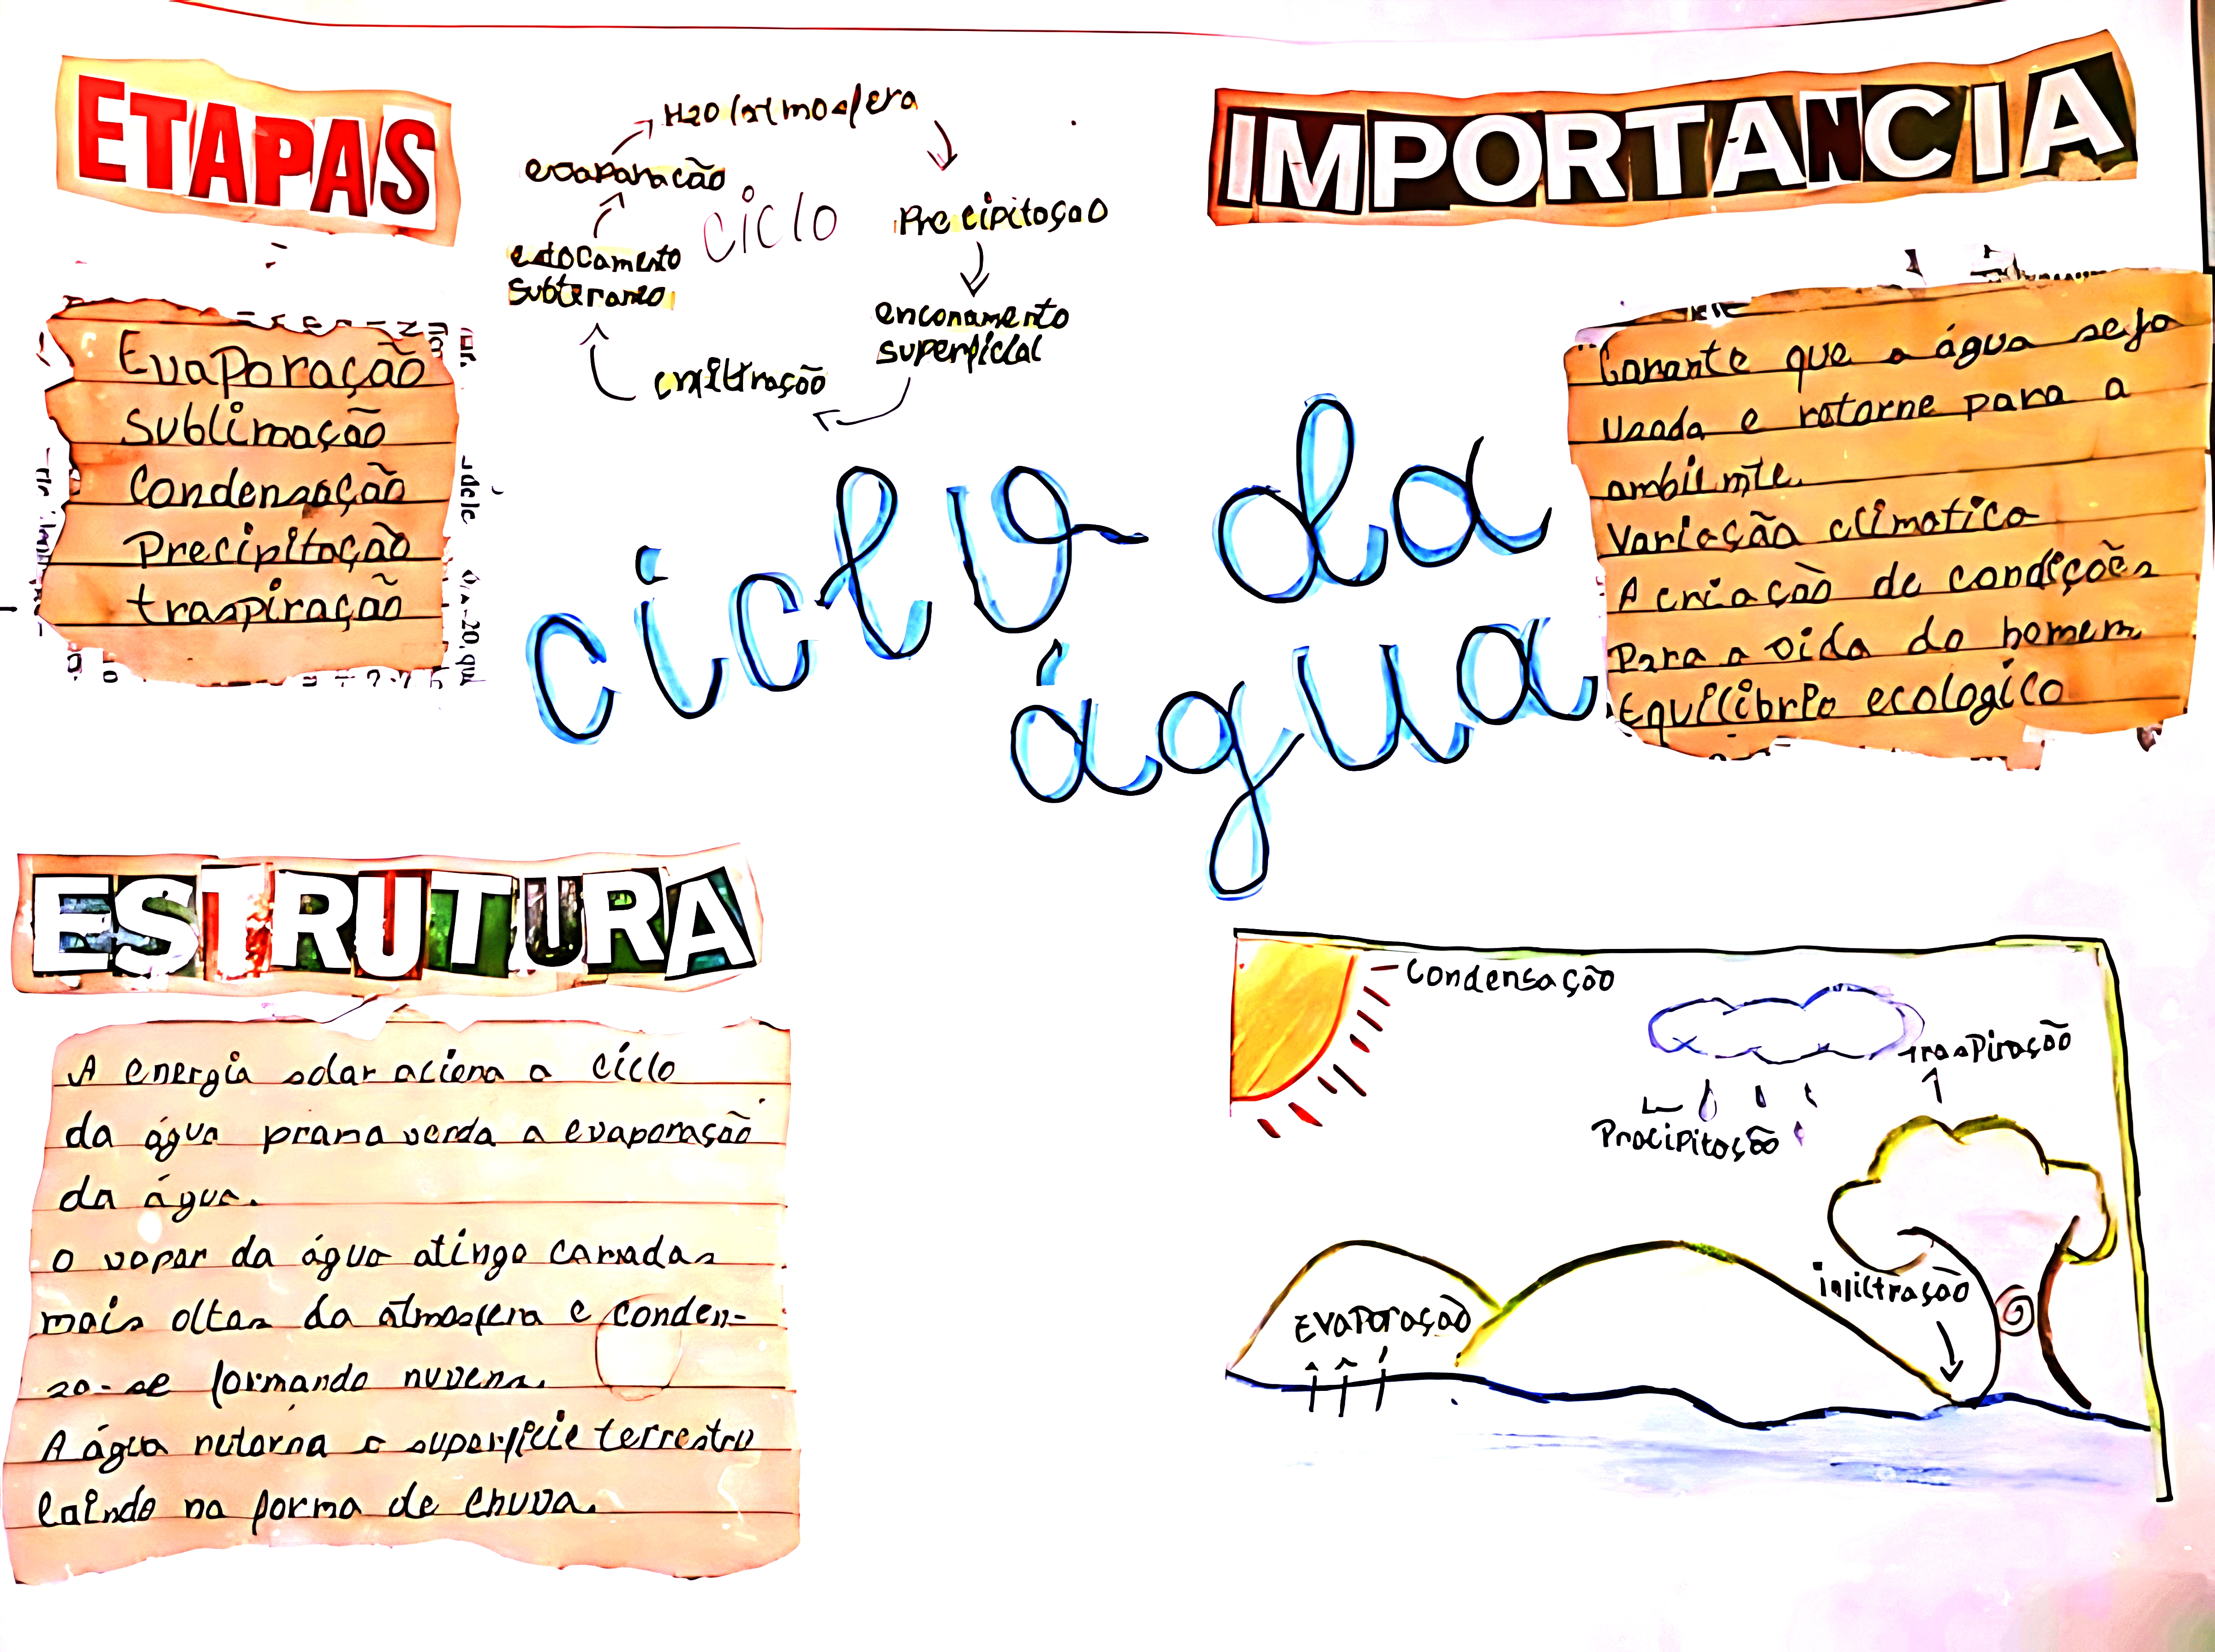 ETAPAS
Evaporação
Sublimação
Condensação
Precipitação
traspiração
H2O/atmosfera
evaporação
ciclo
Precipitação
estocamento
subteraneo
superficial
ciclo da
água
IMPORTANCIA
Garante que a água seja
usada e retorne para a
ambiente.
Variação climatica
A criação de condições
Para a vida do homem
Equilibrio ecologico
ESTRUTURA
A energia solar aciona o ciclo
da água a evaporação
da água.
O vapor da água atinge camadas
mais altas da atmosfera e conden-
formando nuvens.
A água retorna a superficie terrestre
caindo na forma de chuva.
Condensação
traspiração
Precipitação
infiltração
Evaporação